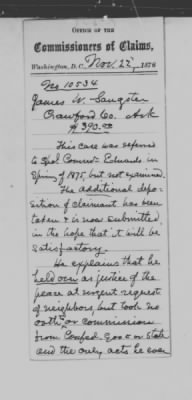 OFFICE OF THE
Commissioners of Claims,
Washington, D. C. Nov. 22, 1876
No 10534
James W. Sangster
Crawford Co. Ark
$390.00
This case was referred
to Spl Comr Edwards in
Spring of 1875, but not examined.
The additional depo-
sition of claimant has been
taken & is now submitted
in the hope that it will be
satisfactory.
He explains that he
held over as justice of the
peace at urgent request
of neighbors, but took no
oath or commission
from Confed. Gov. or State
and the only acts he ever